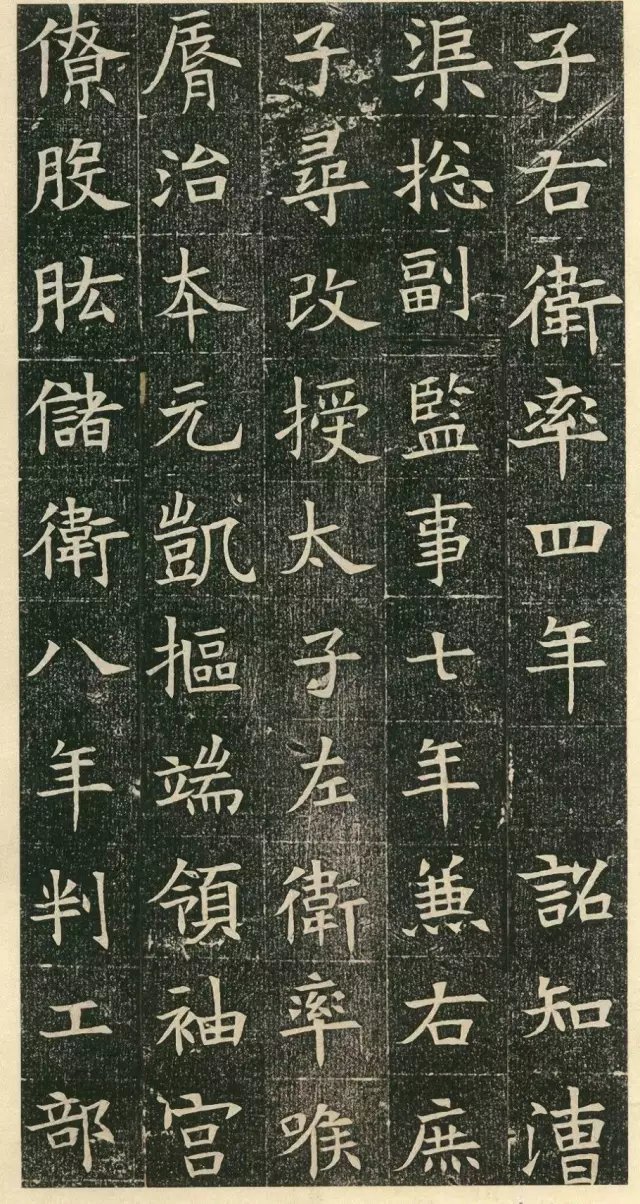 子右衛率四年 詔知漕
渠捴副監事七年兼右庶
子尋改授太子左衛率喉
脣治本元凱摳端領袖宮
僚股肱儲衛八年判工部